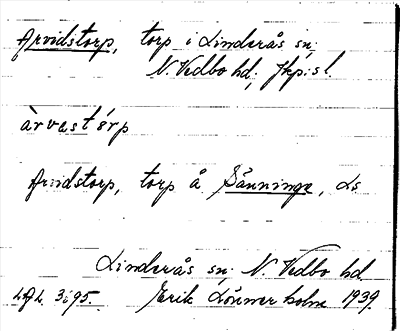 Arvidstorp, torp i Linderås sn;
N. Vedbo hd; Jkp:s l.
àrvastórp
Arvidstorp, torp å Sänninge, Ls
Linderås sn; N. Vedbo hd
Erik Lönnerholm 1939.